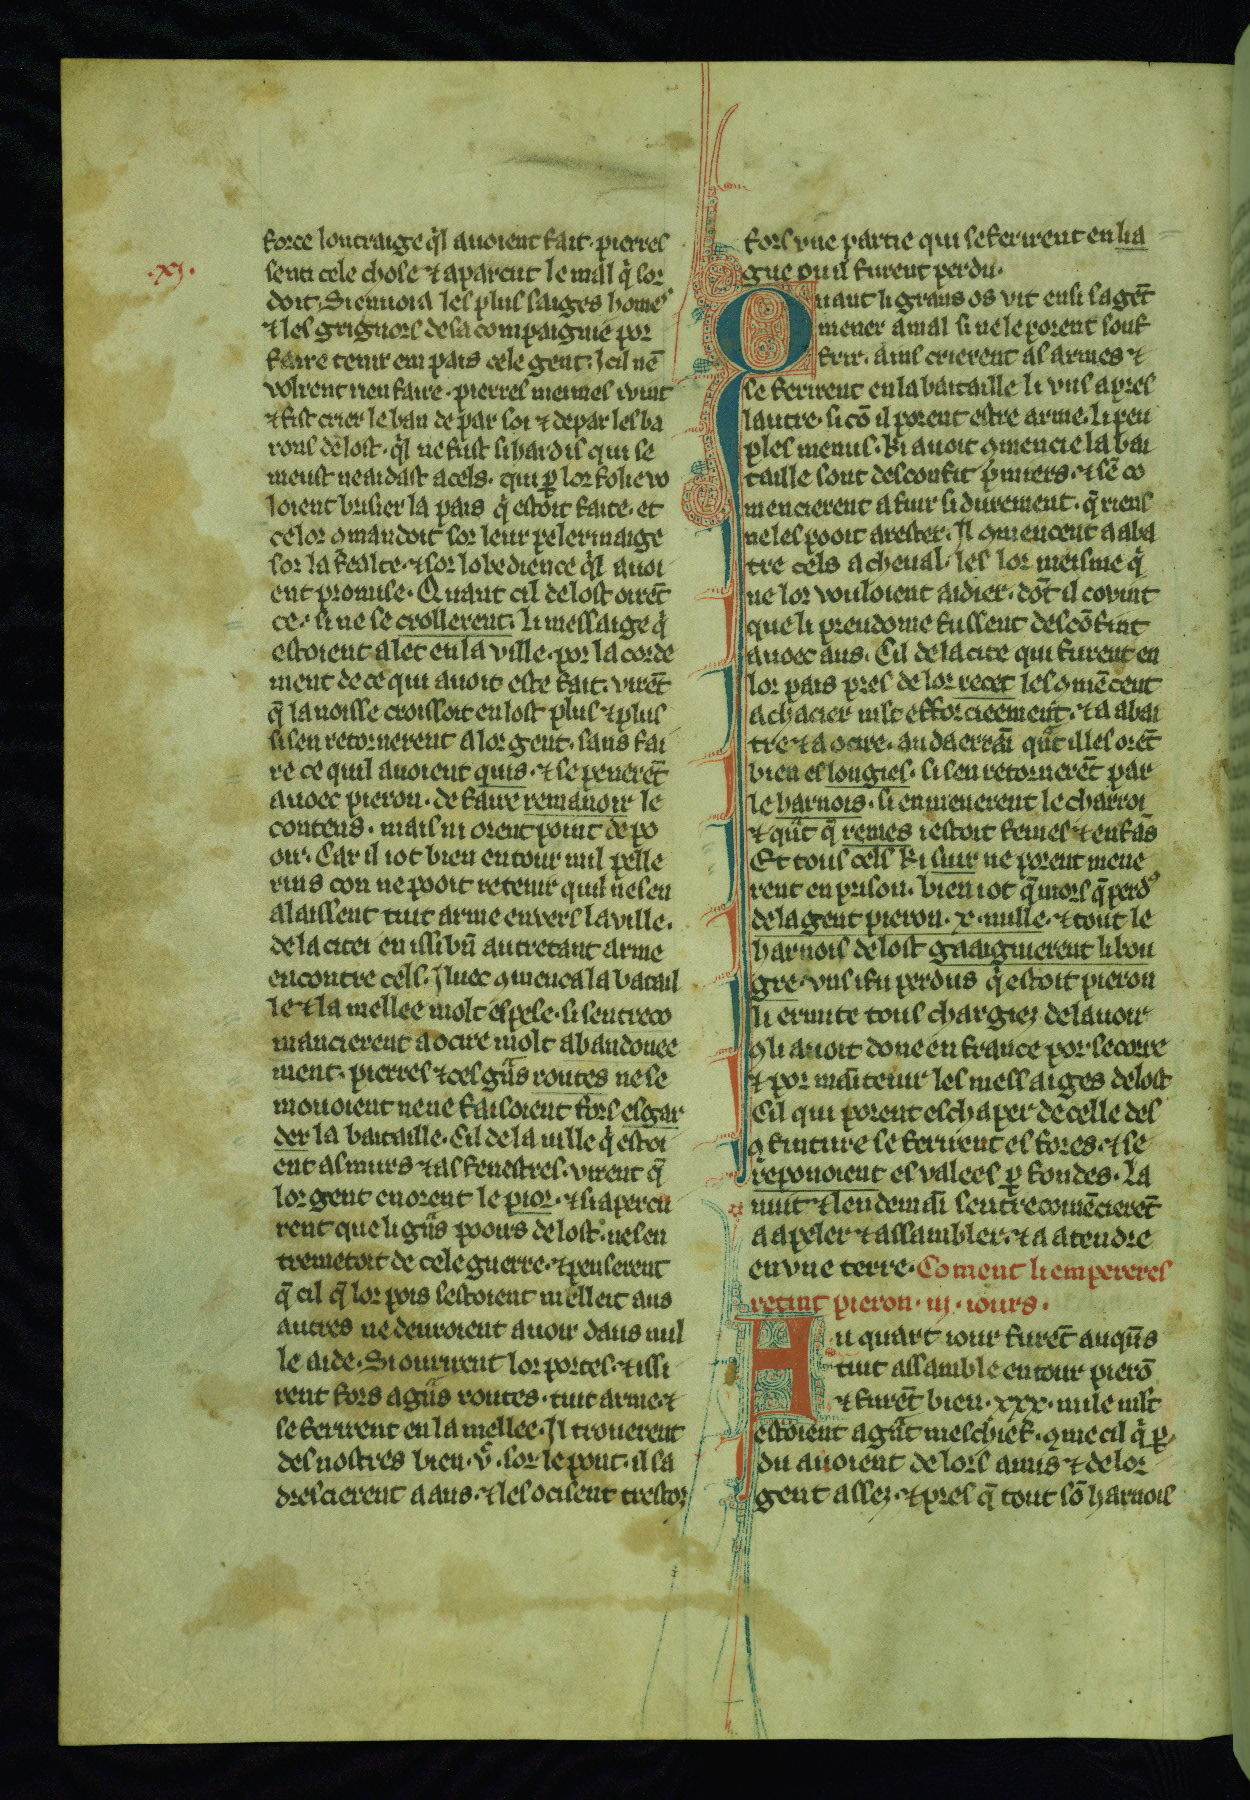 force loutraige q̃l auoient fait· pierres
·xj·
senti cele chose ⁊ aparcut le mal q̃ sor
doit· Si enuoia les plus saiges homes
⁊ les grignors de sa compaignie por
faire tenir em pais cele gent· Jcil nē
volrent rien faire· pierres meimes i vint
⁊ fist crier le ban de par soi ⁊ de par les ba
rons de lost· q̃l ne fust si hardis qui se
meust ne aidast a cels· qui ꝑ lor folie vo
loient brisier la pais q̃ estoit faite· et
ce lor ꝯmandoit sor leur pelerinaige
sor la fealte· ⁊ sor lobedience q̃l auoi
ent promise· Quant cil de lost oirēt
ce· si ne se crollerent· li messaige q̃
estoient alet en la ville· por la corde
ment de ce qui auoit este fait· virēt
q̃ la noisse croissoit en lost plus ⁊ plus
si sen retornerent a lor gent· sans fai
re ce quil auoient quis· ⁊ se penerēt
auoec pieron· de faire remanoir le
contens· mais ni orent point de po
oir· Car il iot bien entour mil pelle
rins con ne pooit retenir quil ne sen
alaissent tuit arme envers la ville·
de la citei en issi bn̄ autretant arme
encontre cels· Jluec ꝯmenca la batail
le ⁊ la mellee molt espese· si sentreco
mancierent a ocire molt abandonee
ment· pierres ⁊ ces gñs routes ne se
mouoient ne ne faisoient fors esgar
der la bataille· Cil de la uille q̃ estoi
ent as murs ⁊ as fenestres· virent q̃
lor gent en orent le pior· ⁊ si apercu
rent que li gñs pooirs de lost· ne sen
tremetoit de cele guerre· ⁊ penserent
q̃ cil q̃ lor pois sestoient melleit aus
autres ne deuroient auoir dans nul
le aide· Si ourirent lor portes· ⁊ issi
rent fors a gñs routes· tuit arme· ⁊
se ferirent en la mellee· Jl trouerent
des nostres bien· v̊· sor le pont· il sa
drescierent a aus· ⁊ les ocisent trestoz
fors vne partie qui se ferirent en lia
gue ou il furent perdu·
Quant li grans os vit ensi sa gēt
mener a mal si ne le porent souf
frir· ains crierent as armes ⁊
se ferirent en la bataille li vns apres
lautre· si cō il porent estre arme· li peu
ples menus· ki auoit ꝯmencie la bai
taille sont desconfit p̃miers· ⁊ sē co
mencierent a fuir si durement· q̃ riens
ne les pooit arester· Jl ꝯmencent a aba
tre cels a cheual· les lor meisme q̃
ne lor vouloient aidier· dōt il covint
que li preudome fussent descōfiit
auoec aus· Cil de la cite qui furent en
lor pais pres de lor recet les ꝯmēcent
a chacier mlt efforcieement· ⁊ a abai
tre ⁊ a ocire· au daerrāī q̃t il les orēt
bien eslongies· si sen retornerēt par
le harnois· si enmenerent le charroi
⁊ q̃t q̃ remes i estoit femes ⁊ enfās
Et tous cels ki fuir ne porent mene
rent en prison· bien iot q̃ mors q̃ perdꝰ
de la gent pieron· x· mille· ⁊ tout le
harnois de lost gaaignierent li bou
gre· vns i fu perdus q̃ estoit pieron
li ermite tous chargiez de lauoir
q̃ li auoit done en france por secorre
⁊ por maītenir les messaiges de lost
Cil qui porent eschaper de celle des
ꝯfiture se ferirent es fores· ⁊ se
reponoient es valees ꝑfondes· La
nuit ⁊ lendemāī sentrecomēcierēt
a apeler ⁊ assambler· ⁊ a atendre
en vne terre· Coment li empereres
retint pieron· iij· iours·
Au quart iour furēt auq̃s
tuit assamble entour pierō
⁊ furēt bien· xxx· mile mlt
estoient a gr̃t meschief· ꝯme cil q̃ ꝑ
du auoient de lors amis ⁊ de lor
gent assez· ⁊ pres q̃ tout sō harnois